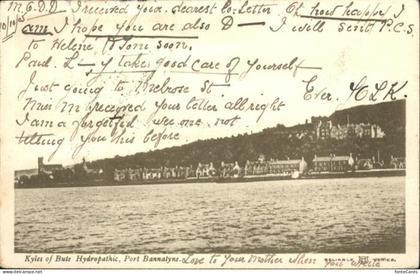 M.C.D.D — I received your dearest Co-Letter Oh how happy I
10/11/05
am I hope you are also D — I will send P.C.S
to Helene & Tom soon.
Paul. L — y take good care of yourself —
Just going to Melrose St.
Miss M received your letter allbright
I am a forgot see me not
telling you this before
Ever. YOLK
Kyles of Bute Hydropathic, Port Bannatyne.
Love to your Mother when you write
RELIABLE SERIES.